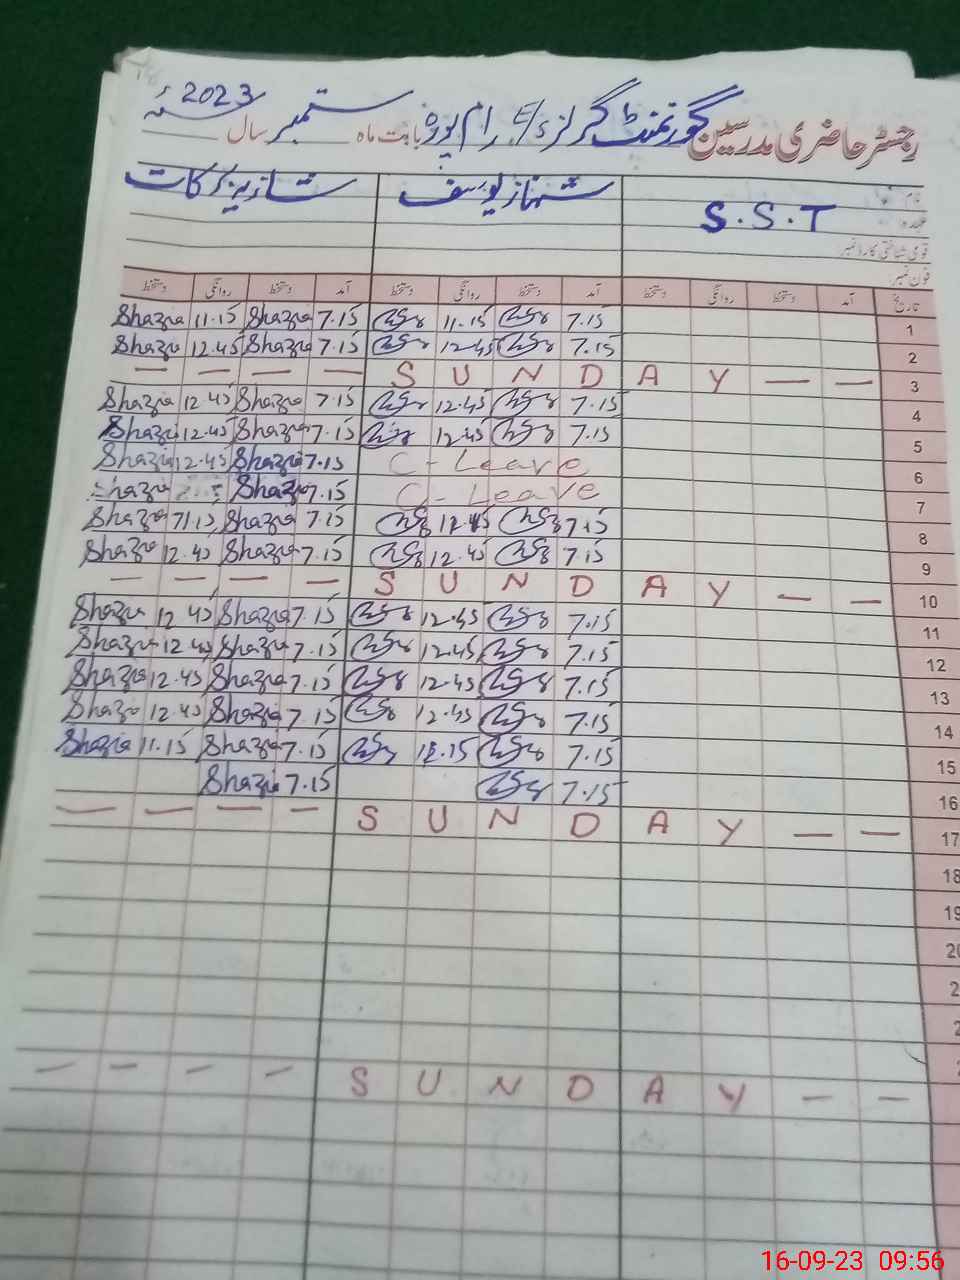 رجسٹر حاضری مدرسین گورنمنٹ گرلز E/S رام پورہ بابت ماہ ستمبر سال 2023ء
نام
S.S.T شہناز یوسف شازیہ برکات
عہدہ
قومی شناختی کارڈ نمبر
فون نمبر
تاریخ آمد دستخط روانگی دستخط آمد دستخط روانگی دستخط آمد دستخط روانگی دستخط
Shazia 11.15 Shazia 7.15 11.15 7.15 1
Shazia 12.45 Shazia 7.15 12.45 7.15 2
— — — — S U N D A Y — — 3
Shazia 12.45 Shazia 7.15 12.45 7.15 4
Shazia 12.45 Shazia 7.15 12.45 7.15 5
Shazia 12.45 Shazia 7.15 C-Leave 6
Shazia Shazia 7.15 C-Leave 7
Shazia Shazia 7.15 12.45 7.15 8
Shazia 12.45 Shazia 7.15 12.45 7.15 9
— — — — S U N D A Y — — 10
Shazia 12.45 Shazia 7.15 12.45 7.15 11
Shazia 12.45 Shazia 7.15 12.45 7.15 12
Shazia 12.45 Shazia 7.15 12.45 7.15 13
Shazia 12.45 Shazia 7.15 12.45 7.15 14
Shazia 11.15 Shazia 7.15 7.15 15
Shazia 7.15 7.15 16
— — — — S U N D A Y — — 17
18
19
— — — — S U N D A Y — —
16-09-23 09:56